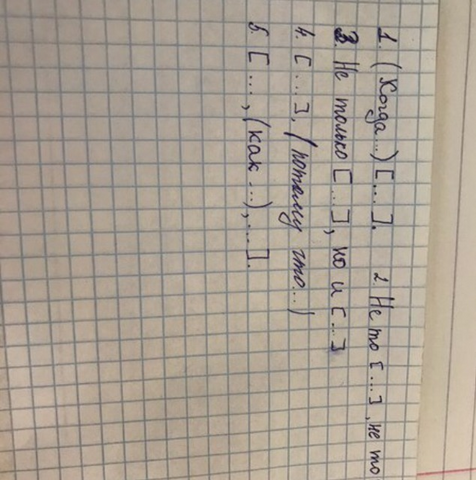 1. (Когда...) [...]. 2 Не то [...], не то
3. Не только [...], но и [...]
4. [...], (потому что...)
5. [..., (как ...), ...].